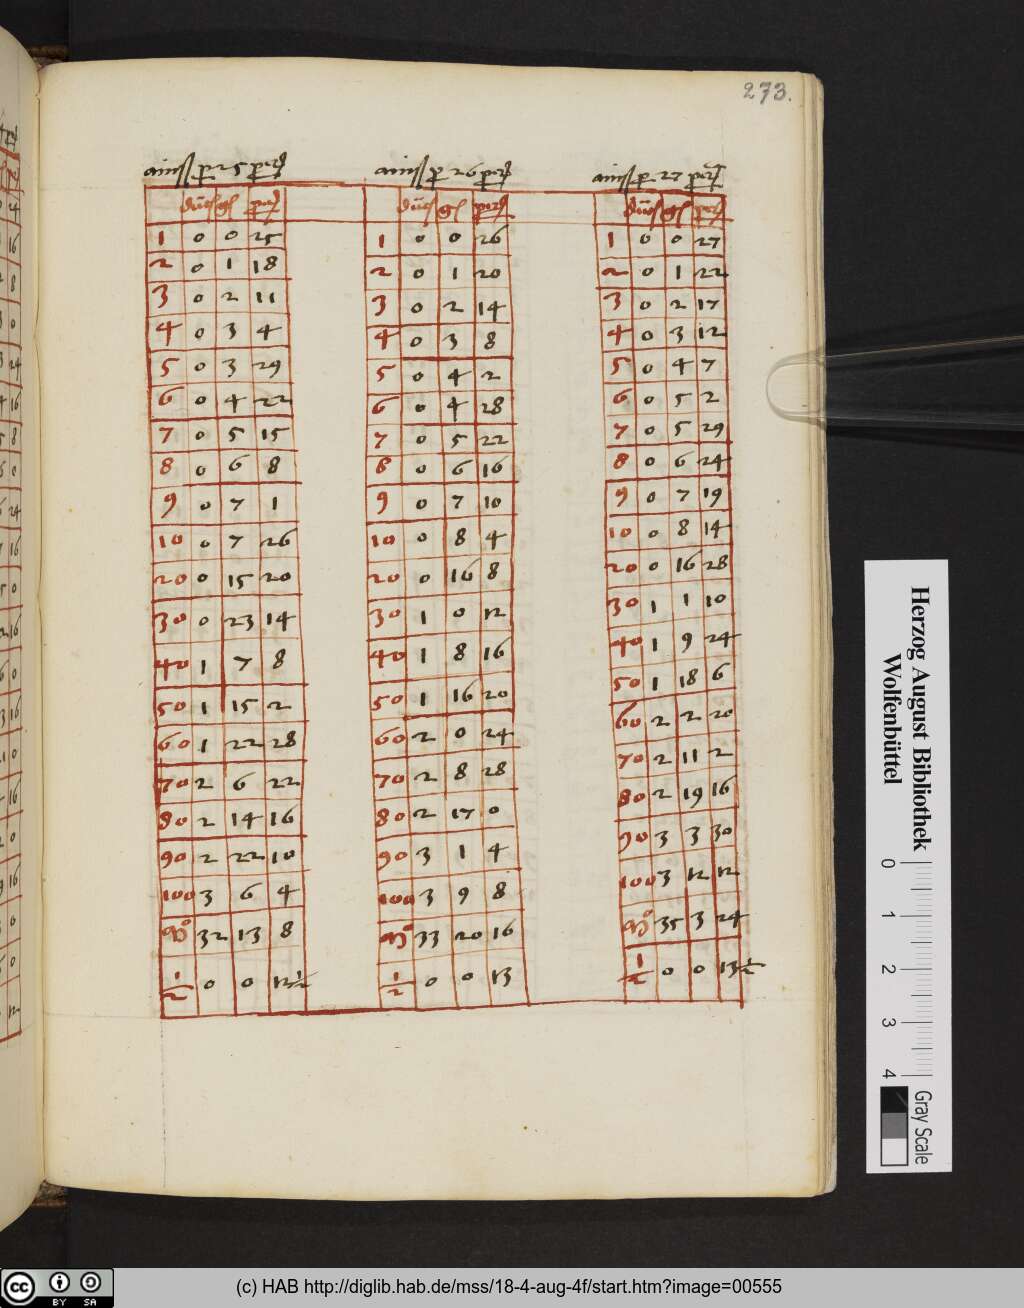 273.
ainß p 25 pern
1 0 0 25
2 0 1 18
3 0 2 11
4 0 3 4
5 0 3 29
6 0 4 22
7 0 5 15
8 0 6 8
9 0 7 1
10 0 7 26
20 0 15 20
30 0 23 14
40 1 7 8
50 1 15 2
60 1 22 28
70 2 6 22
80 2 14 16
90 2 22 10
100 3 6 4
32 13 8
1/2 0 0 12 1/2
ainß p 26 pern
1 0 0 26
2 0 1 20
3 0 2 14
4 0 3 8
5 0 4 2
6 0 4 28
7 0 5 22
8 0 6 16
9 0 7 10
10 0 8 4
20 0 16 8
30 1 0 12
40 1 8 16
50 1 16 20
60 2 0 24
70 2 8 28
80 2 17 0
90 3 1 4
100 3 9 8
33 20 16
1/2 0 0 13
ainß p 27 pern
1 0 0 27
2 0 1 22
3 0 2 17
4 0 3 12
5 0 4 7
6 0 5 2
7 0 5 29
8 0 6 24
9 0 7 19
10 0 8 14
20 0 16 28
30 1 1 10
40 1 9 24
50 1 18 6
60 2 2 20
70 2 11 2
80 2 19 16
90 3 3 30
100 3 12 12
35 3 24
1/2 0 0 13 1/2
Herzog August Bibliothek
Wolfenbüttel
0 1 2 3 4
Gray Scale
cc BY SA
(c) HAB http://diglib.hab.de/mss/18-4-aug-4f/start.htm?image=00555